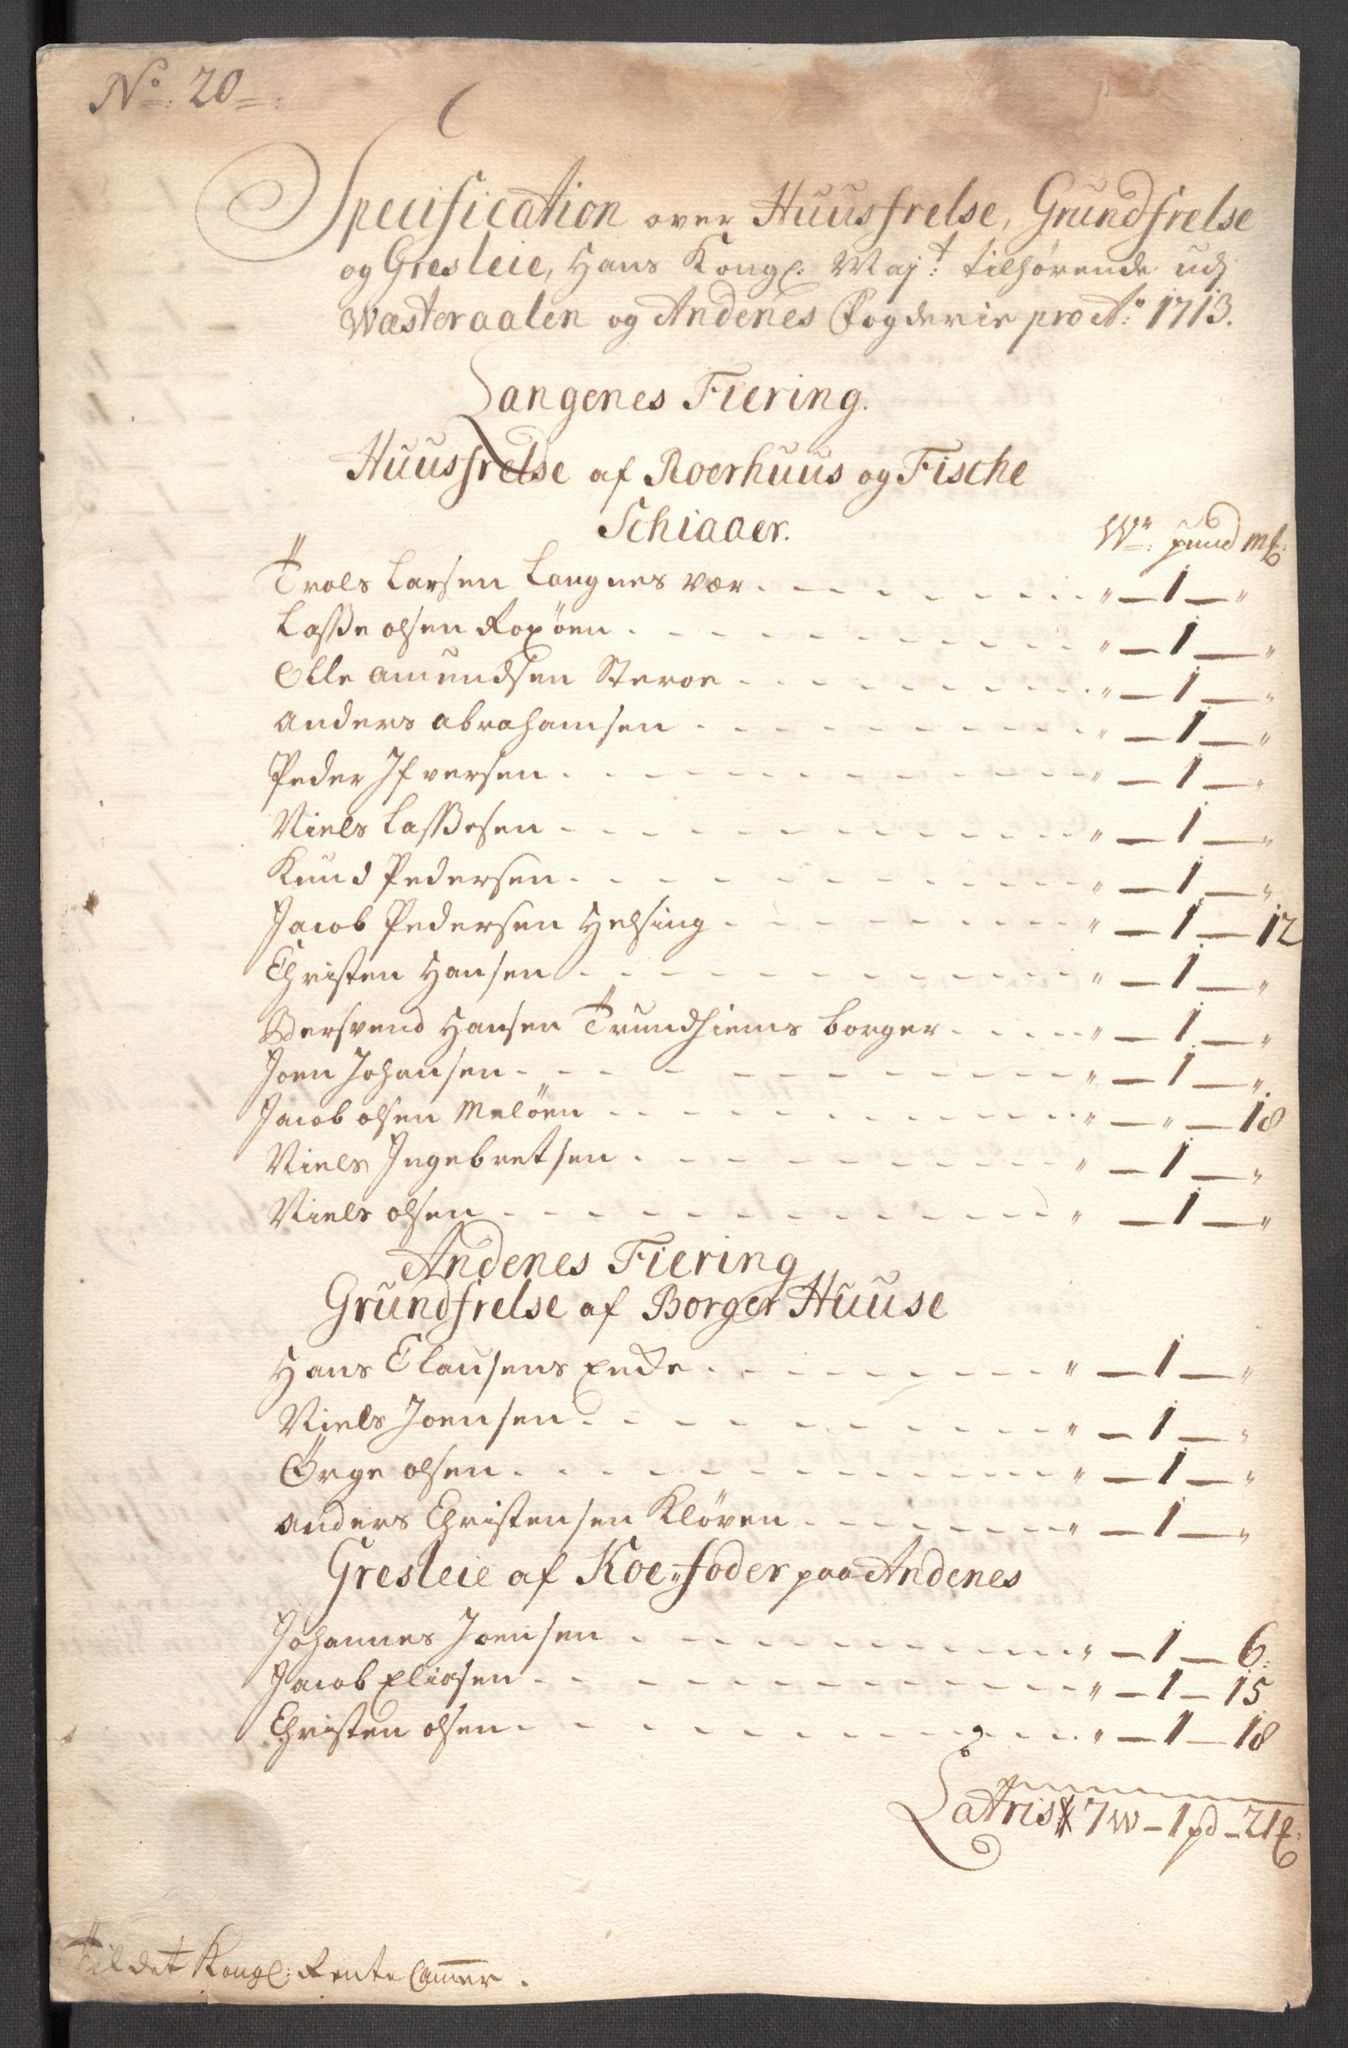 No. 20
Specification over Huusfrelse, Grundfrelse
og Gresleie, Hans Kongl. Majt. tilhørende udj
Wæsteraalen og Andenes Fogderie pro Ao. 1713.
Langenes Fiering.
Huusfrelse af Roerhuus og Fische
Schiaaer.
W. pund mk.
Trols Larsen Langnes vær „ — 1 — „
Lasse olsen Roxøen „ — 1 — „
Olle amundsen Steroe „ — 1 — „
Anders abrahamsen „ — 1 — „
Peder Ifversen „ — 1 — „
Niels Lassesen „ — 1 — „
Knud Pedersen „ — 1 — „
Jacob Pedersen Helsing „ — 1 — 12
Christen Hansen „ — 1 — „
Bersvend Hansen Trundhiems borger „ — 1 — „
Joen Johansen „ — 1 — „
Jacob olsen Meløen „ — „ — 18
Niels Ingebretsen „ — 1 — „
Niels olsen „ — 1 — „
Andenes Fiering
Grundfrelse af Borger Huuse
Hans Clausens Encke „ — 1 — „
Niels Joensen „ — 1 — „
Örge olsen „ — 1 — „
Anders Christensen Kløven „ — 1 — „
Gresleie af Koe-foder paa Andenes
Johannes Joensen „ — 1 — 6.
Jacob Eliasen „ — 1 — 15
Christen olsen „ — 1 — 18
Latris 7 w — 1 pd — 21 mk.
Til det Kongl. Rente Camer.